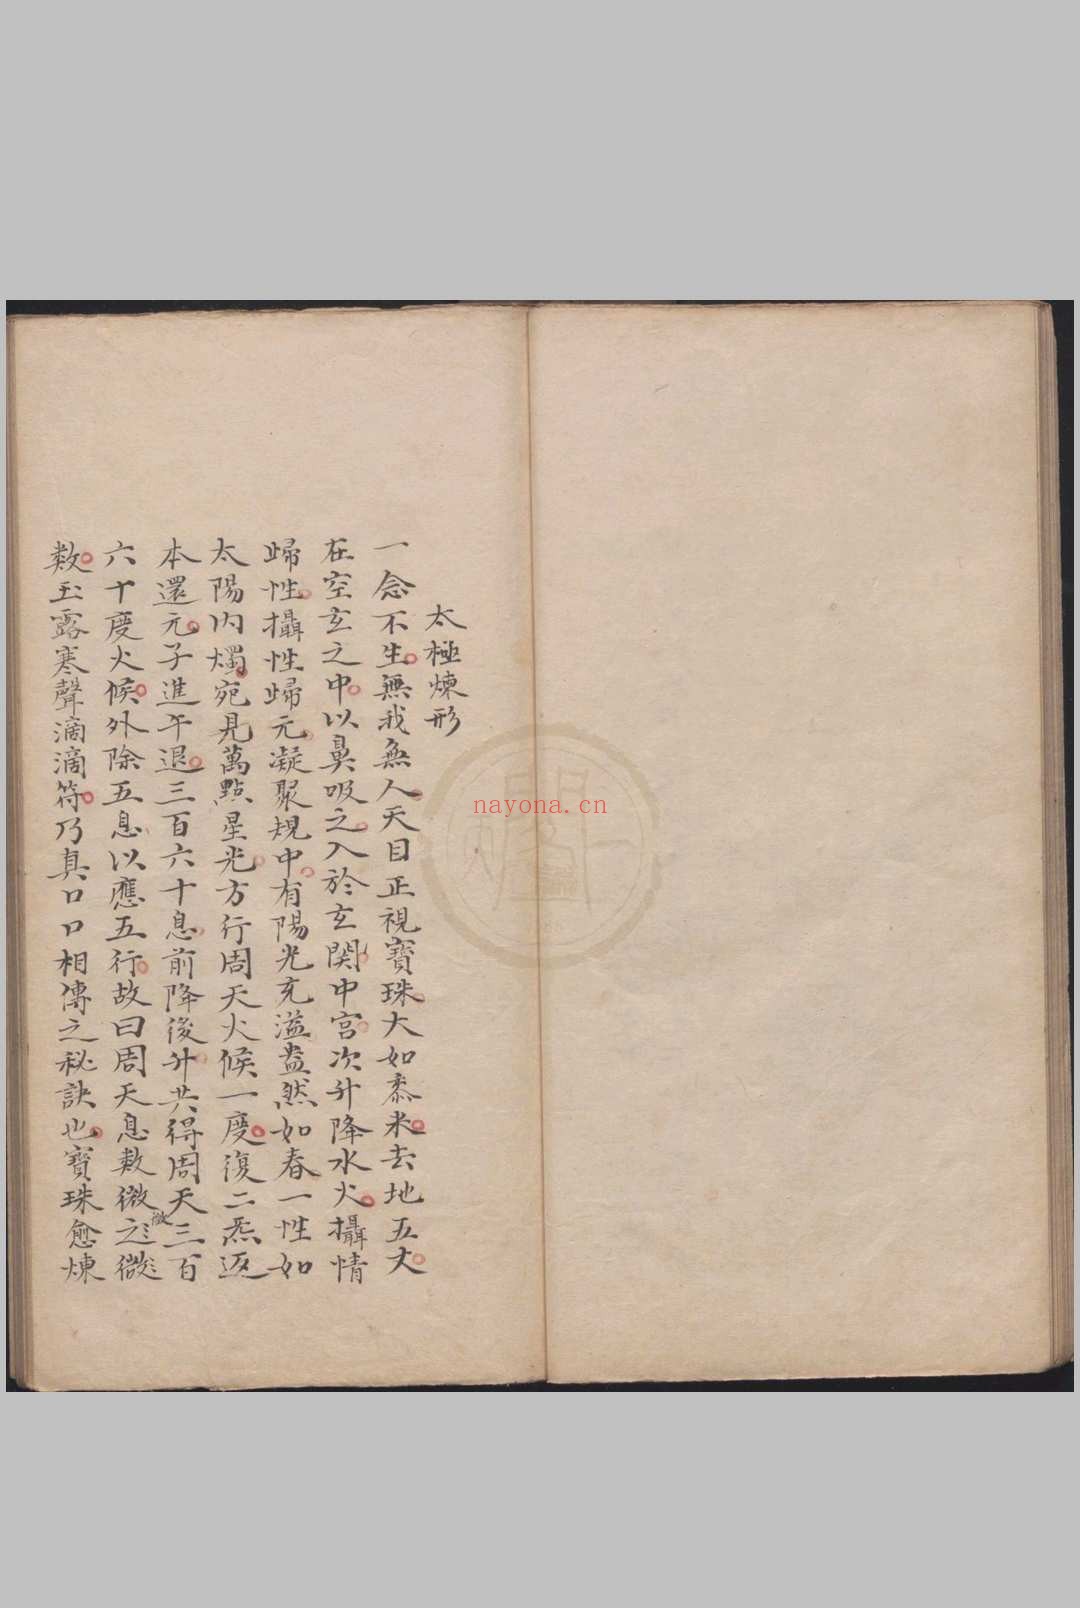 太極煉形
一念不生無我無人天目正視寶珠大如黍米去地五丈
在空玄之中以鼻吸之入於玄関中宫次升降水火攝情
歸性攝性歸元凝聚規中有陽光充溢盎然如春一性如
太陽内燭宛見萬點星光方行周天火候一度復二炁返
本還元子進午退三百六十息前降後升共得周天三百
六十度火候外除五息以應五行故曰周天息数微之微
数玉露寒聲滴滴符乃真口口相傳之秘訣也寶珠愈煉
nayona.cn